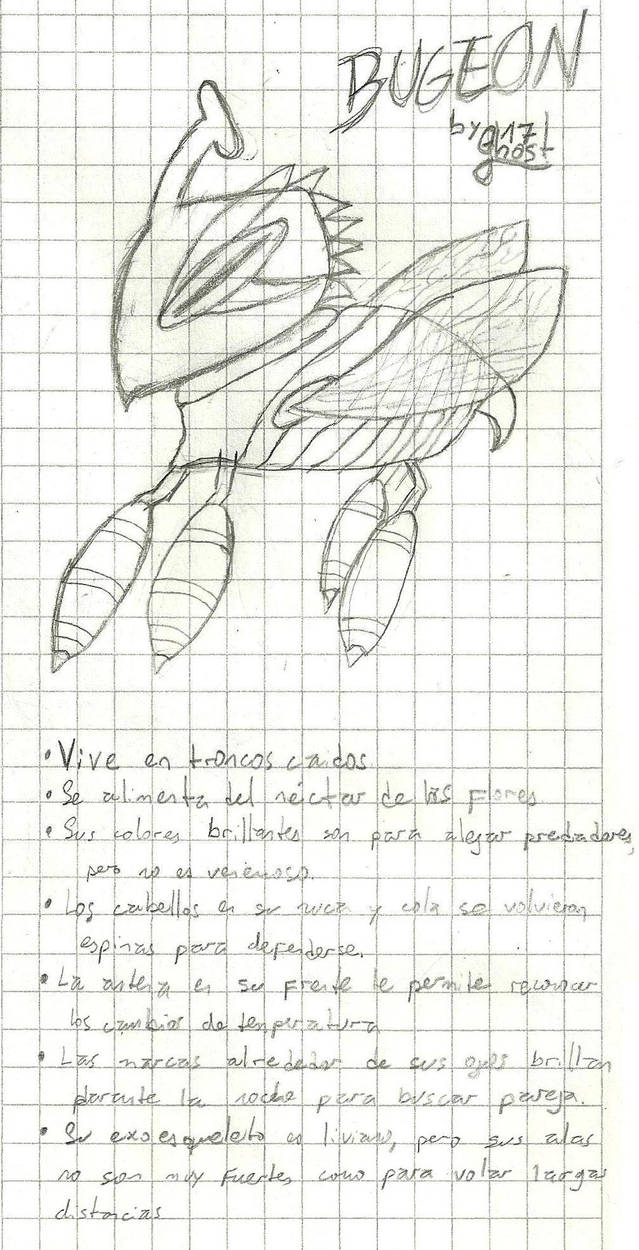 BUGEON
by gh17
ghost
• Vive en troncos caidos
• Se alimenta del néctar de las flores
• Sus colores brillantes son para alejar predradores,
pero no es venenoso.
• Los cabellos en su nuca y cola se volvieron
espinas para defenderse.
• La antena en su frente le permite reconocer
los cambios de temperatura
• Las marcas alrededor de sus ojos brillan
durante la noche para buscar pareja.
• Su exoesqueleto es liviano, pero sus alas
no son muy fuertes como para volar largas
distancias